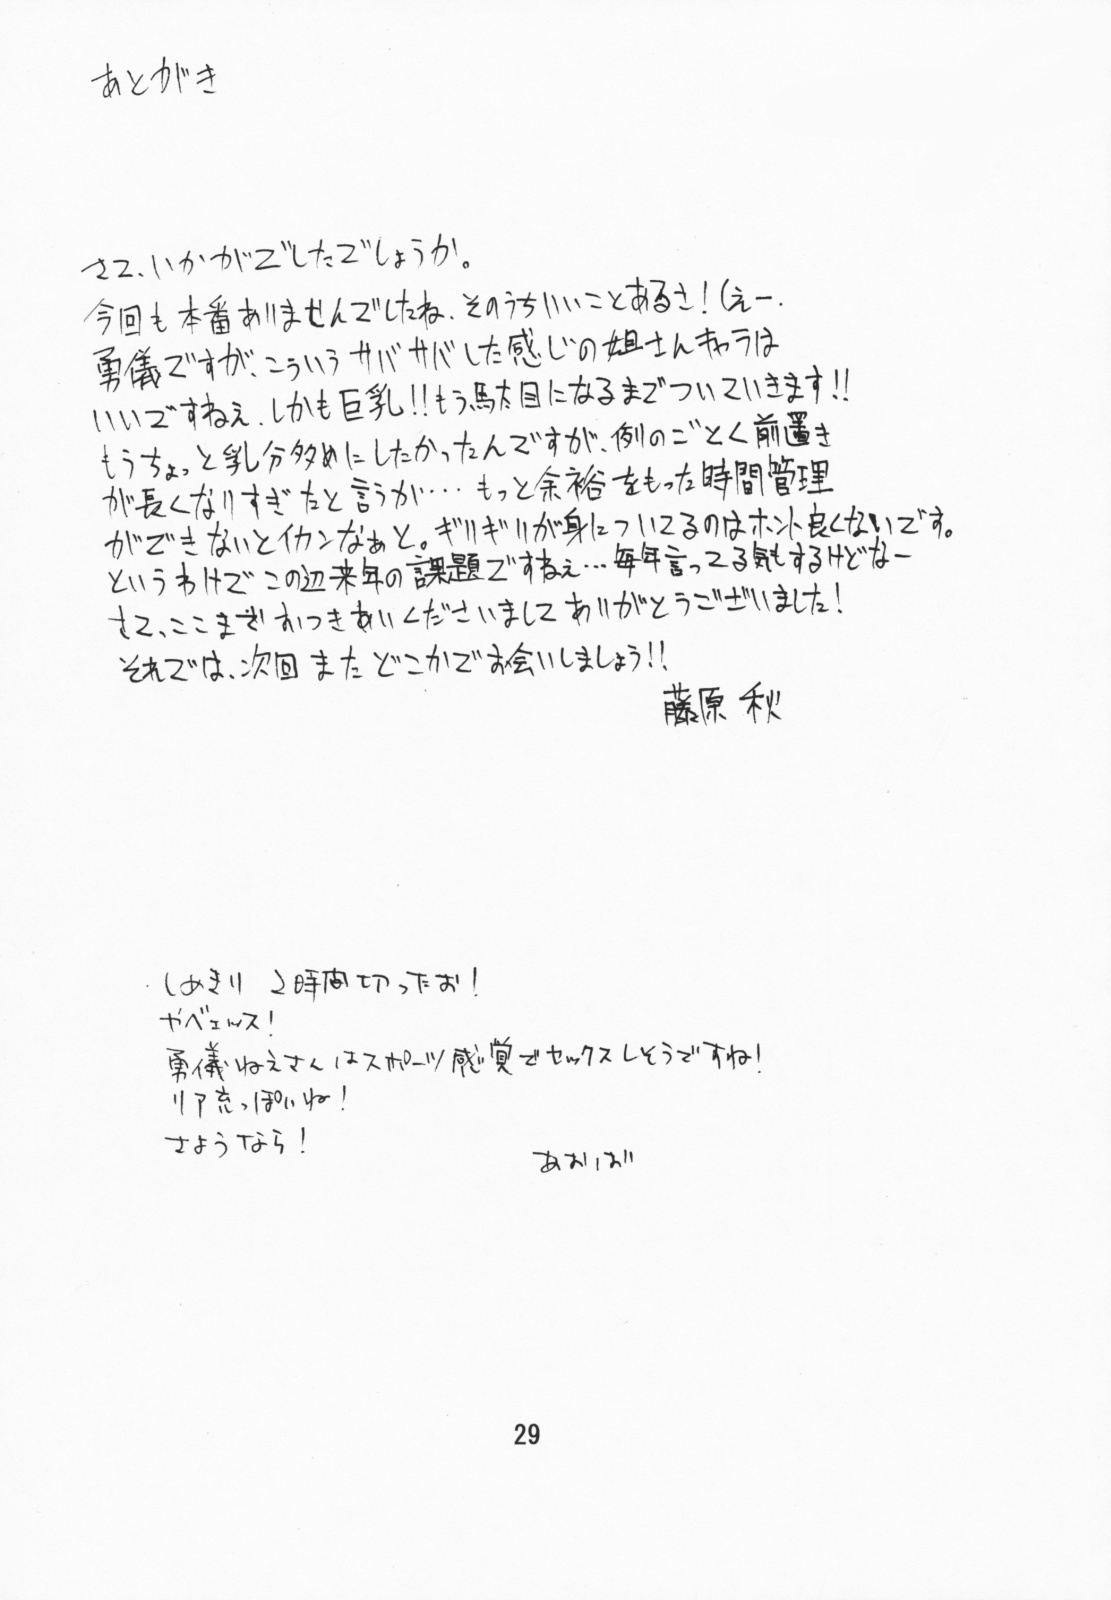 あとがき
さて、いかがでしたでしょうか。
今回も本番ありませんでしたね、そのうちいいことあるさ！(えー.
勇儀ですが、こういうサバサバした感じの姐さんキャラは
いいですねぇ、しかも巨乳！！もう駄目になるまでついていきます！！
もうちょっと乳分多めにしたかったんですが、例のごとく前置き
が長くなりすぎたと言うか…もっと余裕をもった時間管理
ができないとイカンなぁと。ギリギリが身についてるのはホント良くないです。
というわけでこの辺来年の課題ですねぇ…毎年言ってる気もするけどなー
さて、ここまでおつきあいくださいましてありがとうございました！
それでは、次回またどこかでお会いしましょう！！
藤原 秋
しめきり 2時間切ったお！
やべェッス！
勇儀ねえさんはスポーツ感覚でセックスしそうですね！
リア充っぽいね！
さようなら！
あおば
29